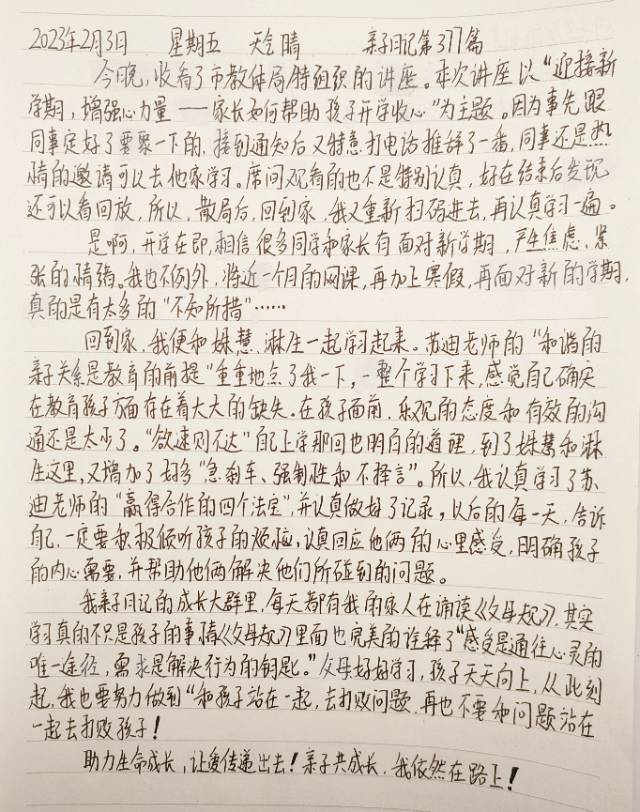 2023年2月3日 星期五 天气晴 亲子日记第377篇
今晚，收看了市教体局特组织的讲座。本次讲座以“迎接新
学期，增强心力量——家长如何帮助孩子开学收心”为主题。因为事先跟
同事定好了要聚一下的，接到通知后又特意打电话推辞了一番，同事还是热
情的邀请可以去他家学习。席间观看的也不是特别认真，好在结束后发现
还可以看回放，所以，散局后，回到家，我又重新扫码进去，再认真学习一遍。
是啊，开学在即，相信很多同学和家长有面对新学期，产生焦虑、紧
张的情绪。我也不例外，将近一个月的网课，再加上寒假，再面对新的学期，
真的是有太多的“不知所措”……
回到家，我便和姝慧、淋生一起学习起来。苏迪老师的“和谐的
亲子关系是教育的前提”重重地点了我一下，一整个学习下来，感觉自己确实
在教育孩子方面存在着大大的缺失。在孩子面前，乐观的态度和有效的沟
通还是太少了。“欲速则不达”自己上学那回也明白的道理，到了姝慧和淋
生这里，又增加了好多“急刹车、强制性和不择言”。所以，我认真学习了苏
迪老师的“赢得合作的四个法宝”，并认真做好了记录，以后的每一天，告诉
自己，一定要积极倾听孩子的烦恼，认真回应他俩的心里感受，明确孩子
的内心需要，并帮助他俩解决他们所碰到的问题。
我亲子日记的成长大群里，每天都有我的家人在诵读《父母规》，其实
学习真的不只是孩子的事情《父母规》里面也完美的诠释了“感受是通往心灵的
唯一途径，需求是解决行为的钥匙。”父母好好学习，孩子天天向上，从此刻
起，我也要努力做到“和孩子站在一起，去打败问题，再也不要和问题站在
一起去打败孩子！
助力生命成长，让爱传递出去！亲子共成长，我依然在路上！